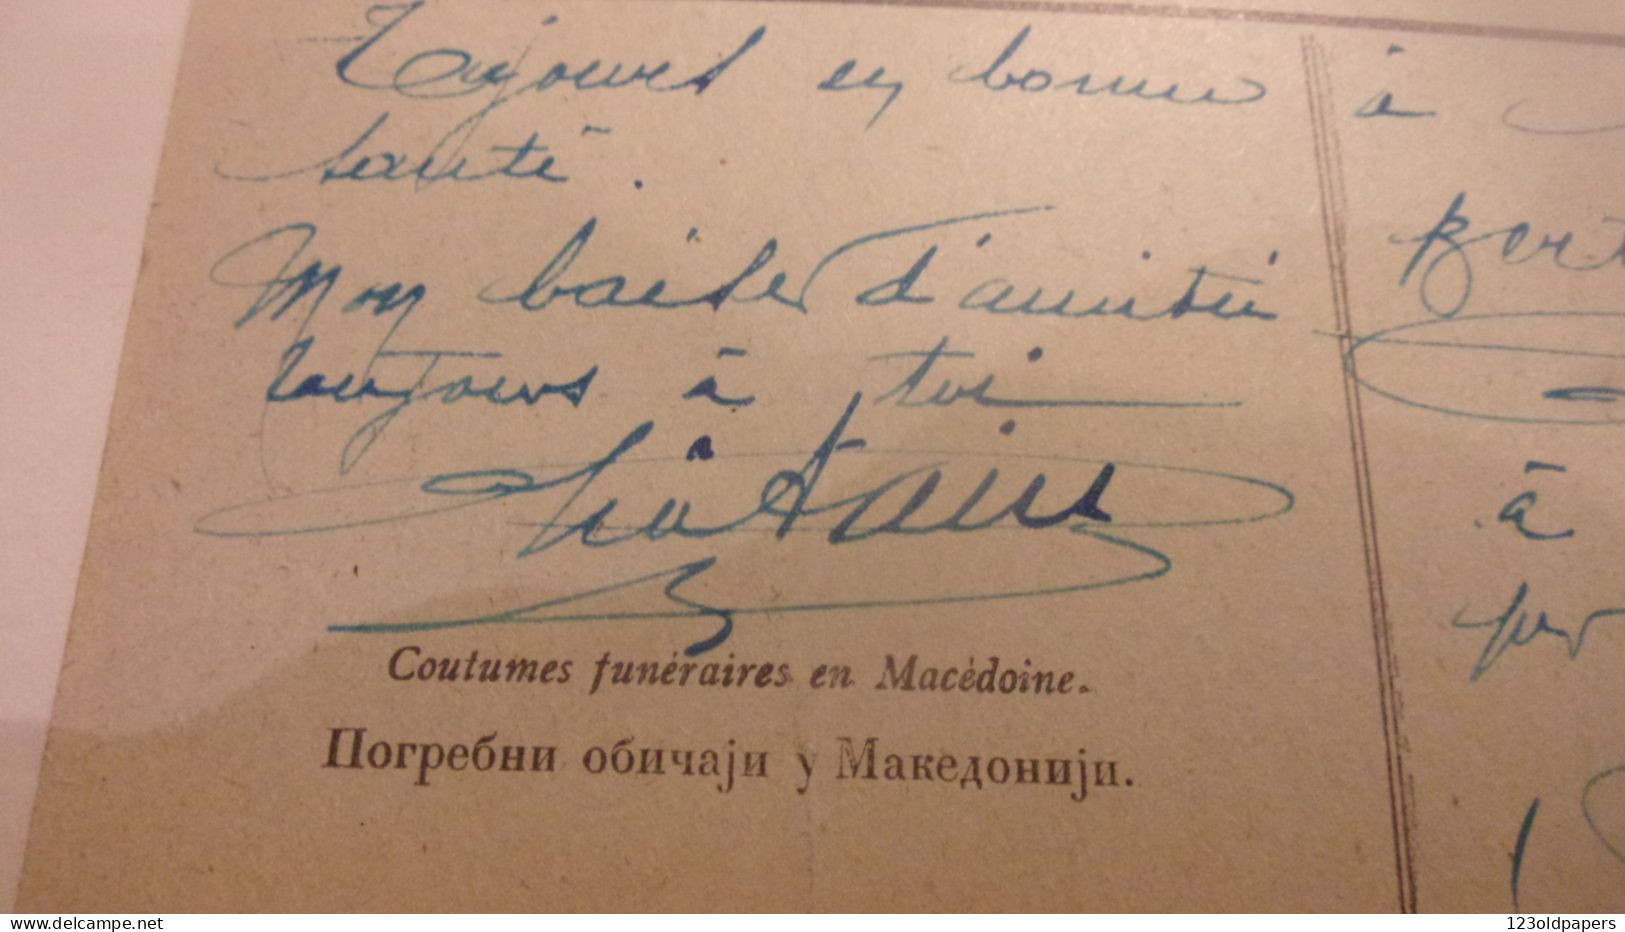 Toujours en bonne
santé.
Mon baiser d'amitié
toujours à toi
Coutumes funéraires en Macédoine.
Погребни обичаји у Македонији.
à
à
delcampe.net
123oldpapers